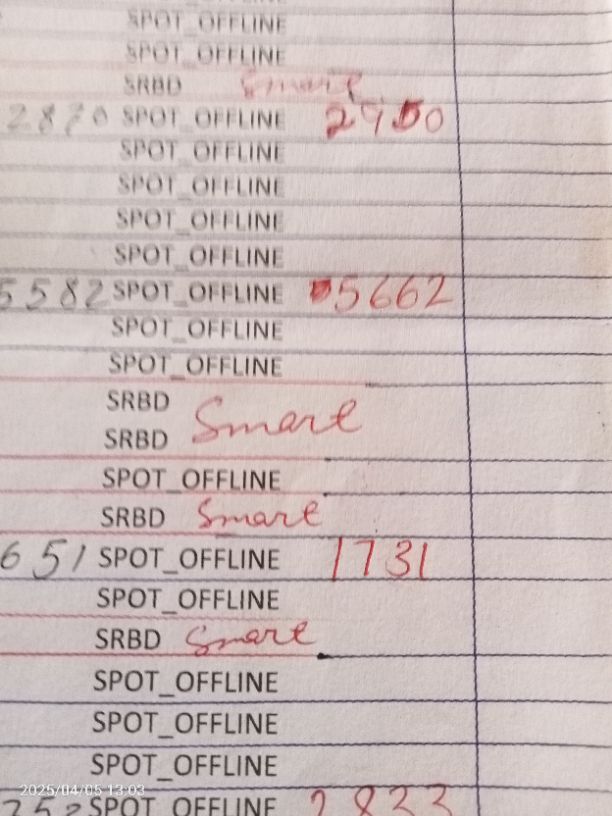 SPOT_OFFLINE
SPOT_OFFLINE
SRBD Smart
2870 SPOT_OFFLINE 2950
SPOT_OFFLINE
SPOT_OFFLINE
SPOT_OFFLINE
SPOT_OFFLINE
5582 SPOT_OFFLINE 5662
SPOT_OFFLINE
SPOT_OFFLINE
SRBD
Smart
SRBD
SPOT_OFFLINE
SRBD Smart
651 SPOT_OFFLINE 1731
SPOT_OFFLINE
SRBD Smart
SPOT_OFFLINE
SPOT_OFFLINE
SPOT_OFFLINE
2025/04/05 13:03
SPOT_OFFLINE